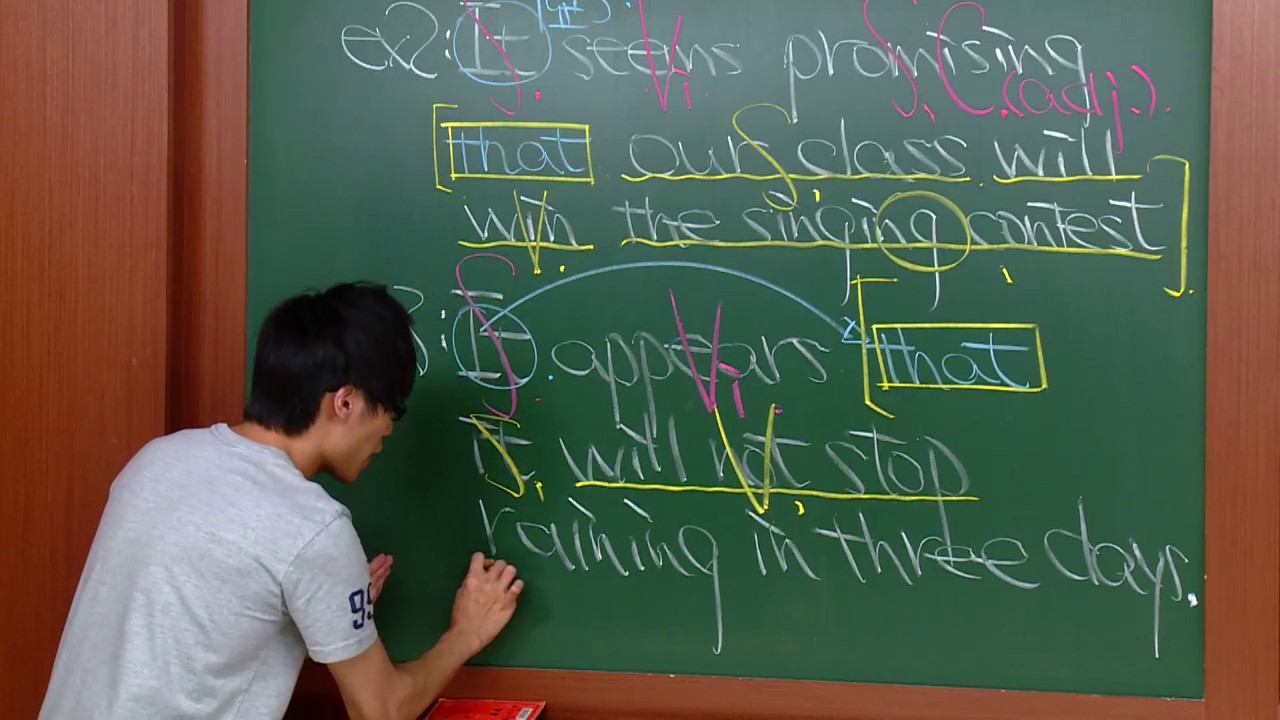 ex2: It seems promising
S. Vi. S.C.(adj.).
that our class will
S.
win the singing contest
V.
3: It appears that
S. Vi.
it will not stop
S. V.
raining in three days.
99